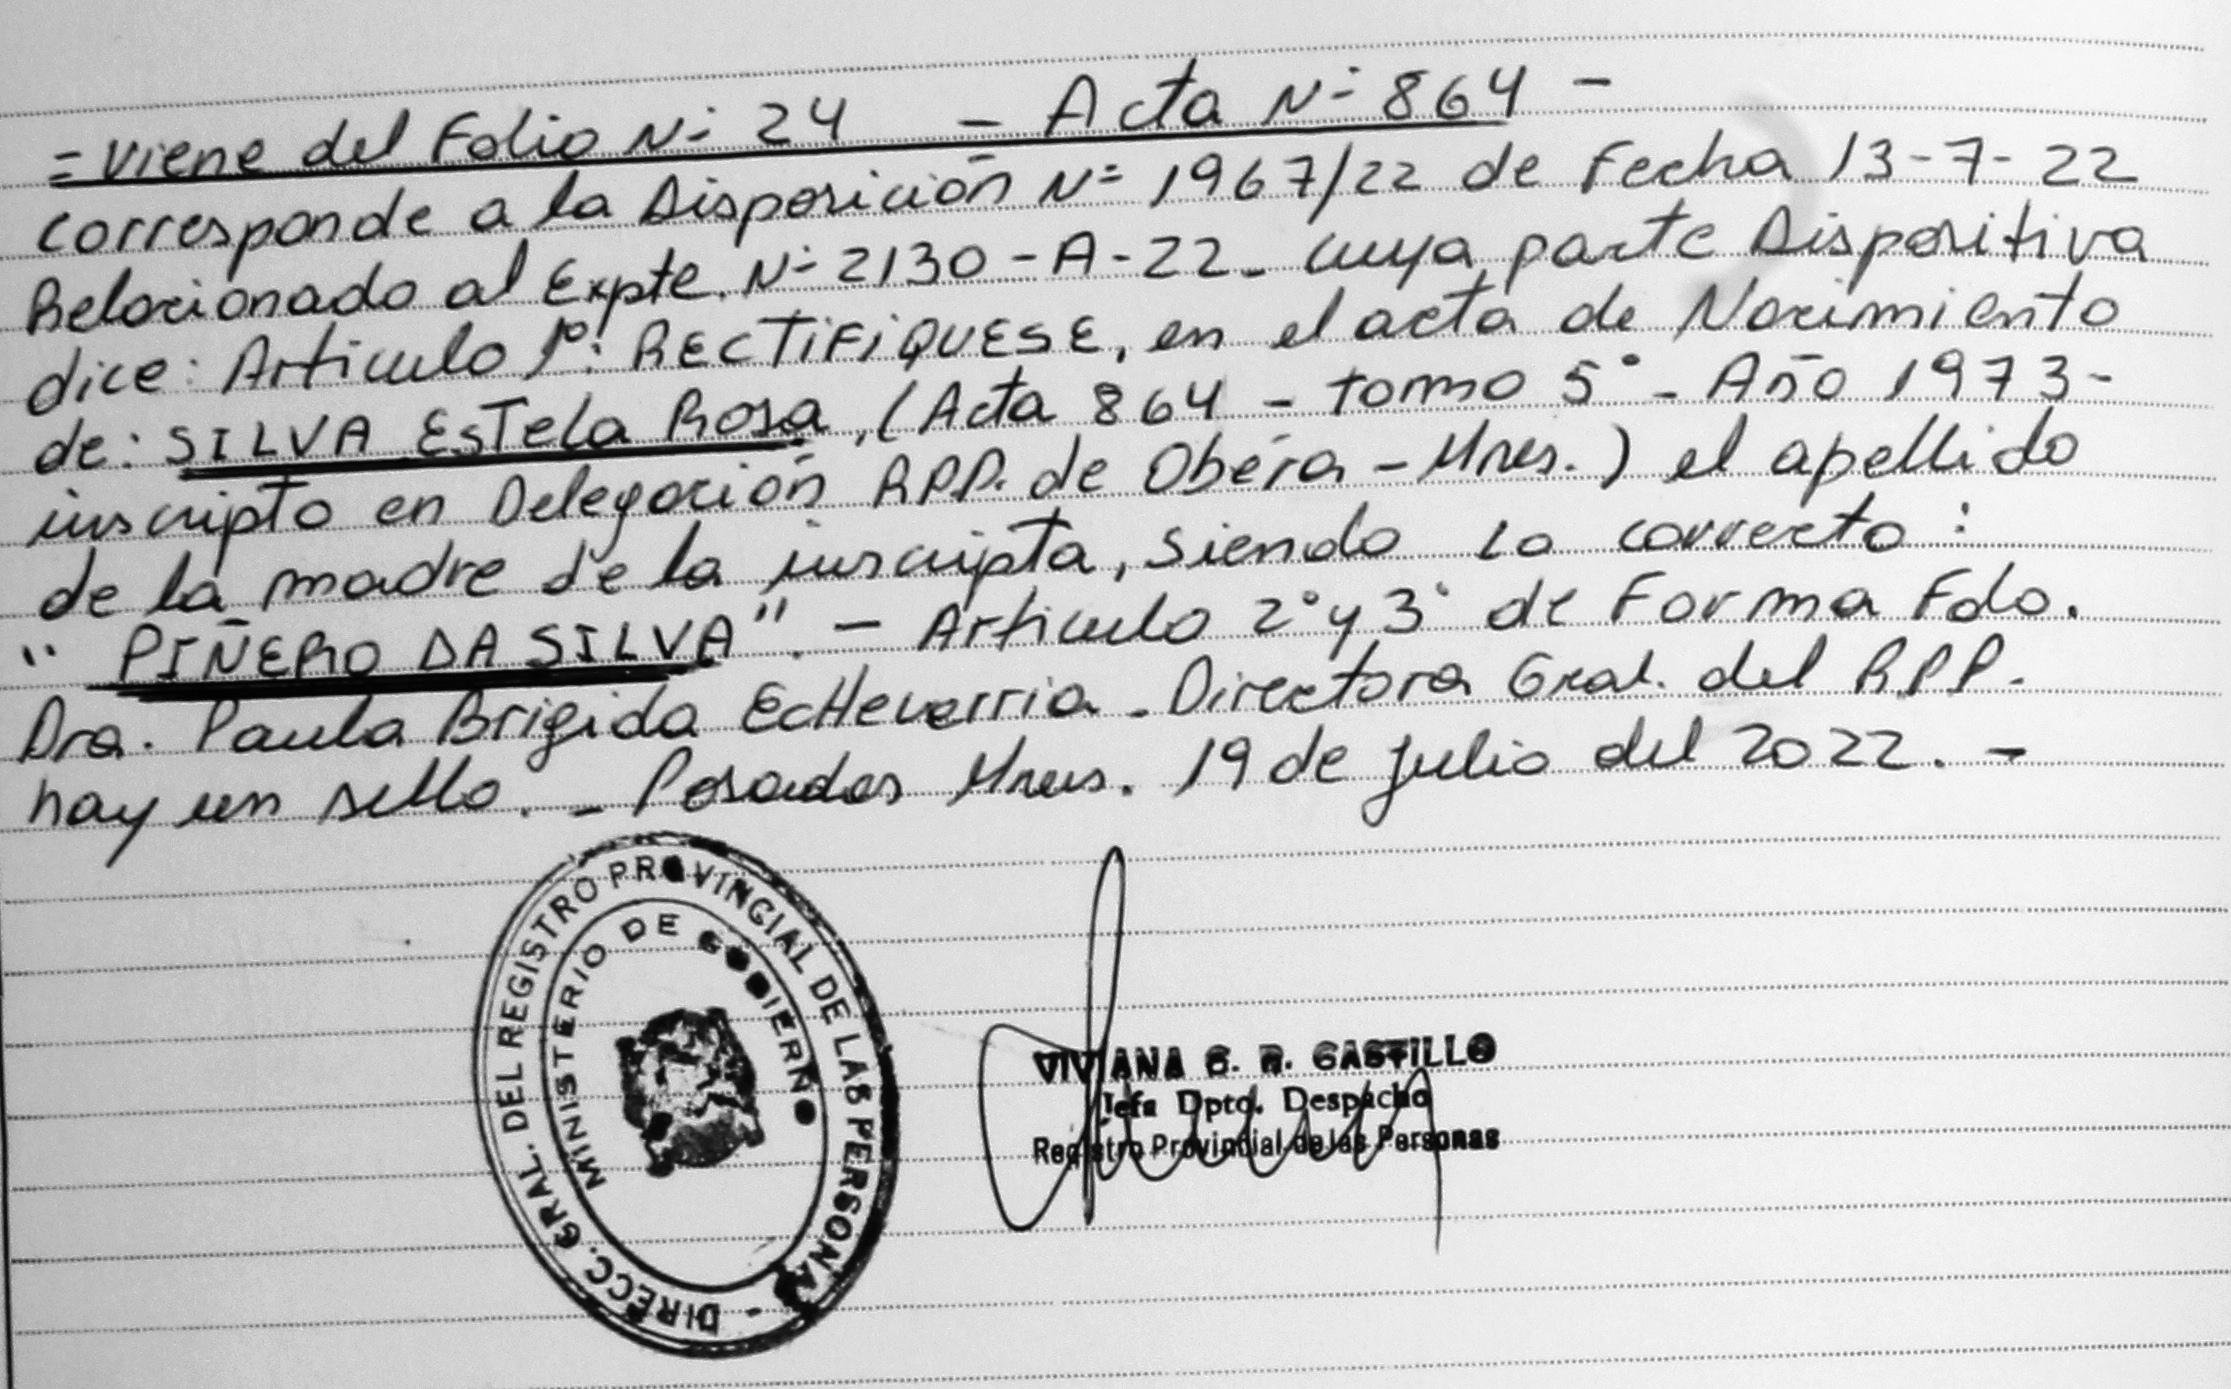 = Viene del Folio N° 24 - Acta N° 864 -
corresponde a la Disposición N° 1967/22 de Fecha 13-7-22
Relacionado al Expte. N° 2130-A-22. cuya parte Dispositiva
dice: Articulo 1°: RECTIFIQUESE, en el acta de Nacimiento
de: SILVA EsTela Rosa, (Acta 864 - tomo 5° - Año 1973-
inscripto en Delegación RPP. de Obera - Mnes.) el apellido
de la madre de la inscripta, Siendo lo correcto:
"PIÑERO DA SILVA". - Articulo 2° y 3° de Forma Fdo.
Dra. Paula Brigida EcHeverria - Directora Gral. del RPP.
hay un sello. - Posadas Mnes. 19 de Julio del 2022. -
DIRECC. GRAL. DEL REGISTRO PROVINCIAL DE LAS PERSONAS -
MINISTERIO DE GOBIERNO
VIVIANA G. R. CASTILLO
Jefa Dpto. Despacho
Registro Provincial de las Personas